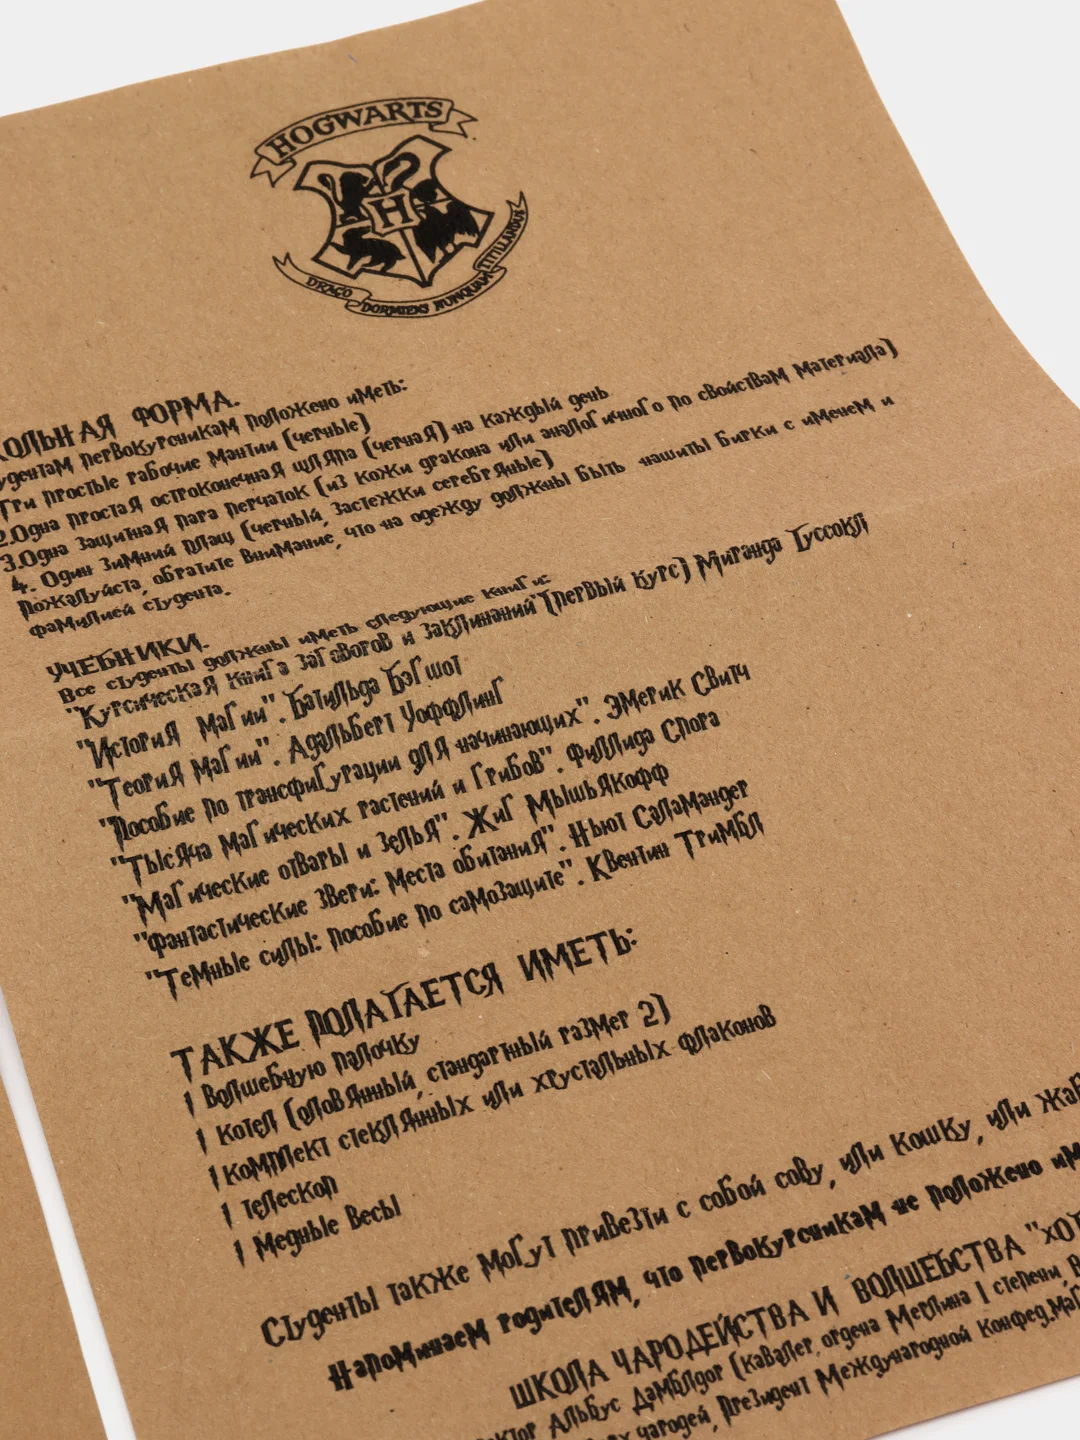 HOGWARTS
H
DRACO DORMIENS NUNQUAM TITILLANDUS
ФОРМА.
первокурсникам положено иметь:
Три простые рабочие мантии (черные)
2.Одна простая остроконечная шляпа (черная) на каждый день
3.Одна защитная пара перчаток (из кожи дракона или аналогичного по свойствам материала)
4. Один зимний плащ (черный, застежки серебряные)
Пожалуйста, обратите внимание, что на одежду должны быть нашиты бирки с именем и
фамилией студента.
УЧЕБНИКИ.
Все студенты должны иметь следующие книги:
"Курсическая книга заговоров и заклинаний"(первый курс) Миранда Гуссокл
"История магии". Батильда Бэгшот
"Теория магии". Адальберт Уоффлинг
"Пособие по трансфигурации для начинающих". Эмерик Свитч
"Тысяча магических растений и грибов". Филлида Спора
"Магические отвары и зелья". Жиг Мышьякофф
"Фантастические звери: места обитания". Ньют Саламандер
"Темные силы: пособие по самозащите". Квентин Тримбл
ТАКЖЕ ПОЛАГАЕТСЯ ИМЕТЬ:
1 Волшебную палочку
1 котел (оловянный, стандартный размер 2)
1 комплект стеклянных или хрустальных флаконов
1 телескоп
1 медные весы
Студенты также могут привезти с собой сову, или кошку, или
Напоминаем родителям, что первокурсникам не положено
ШКОЛА ЧАРОДЕЙСТВА И ВОЛШЕБСТВА
Альбус Дамблдор (кавалер ордена Мерлина I степени,
чародей, Президент Международной Конфед.